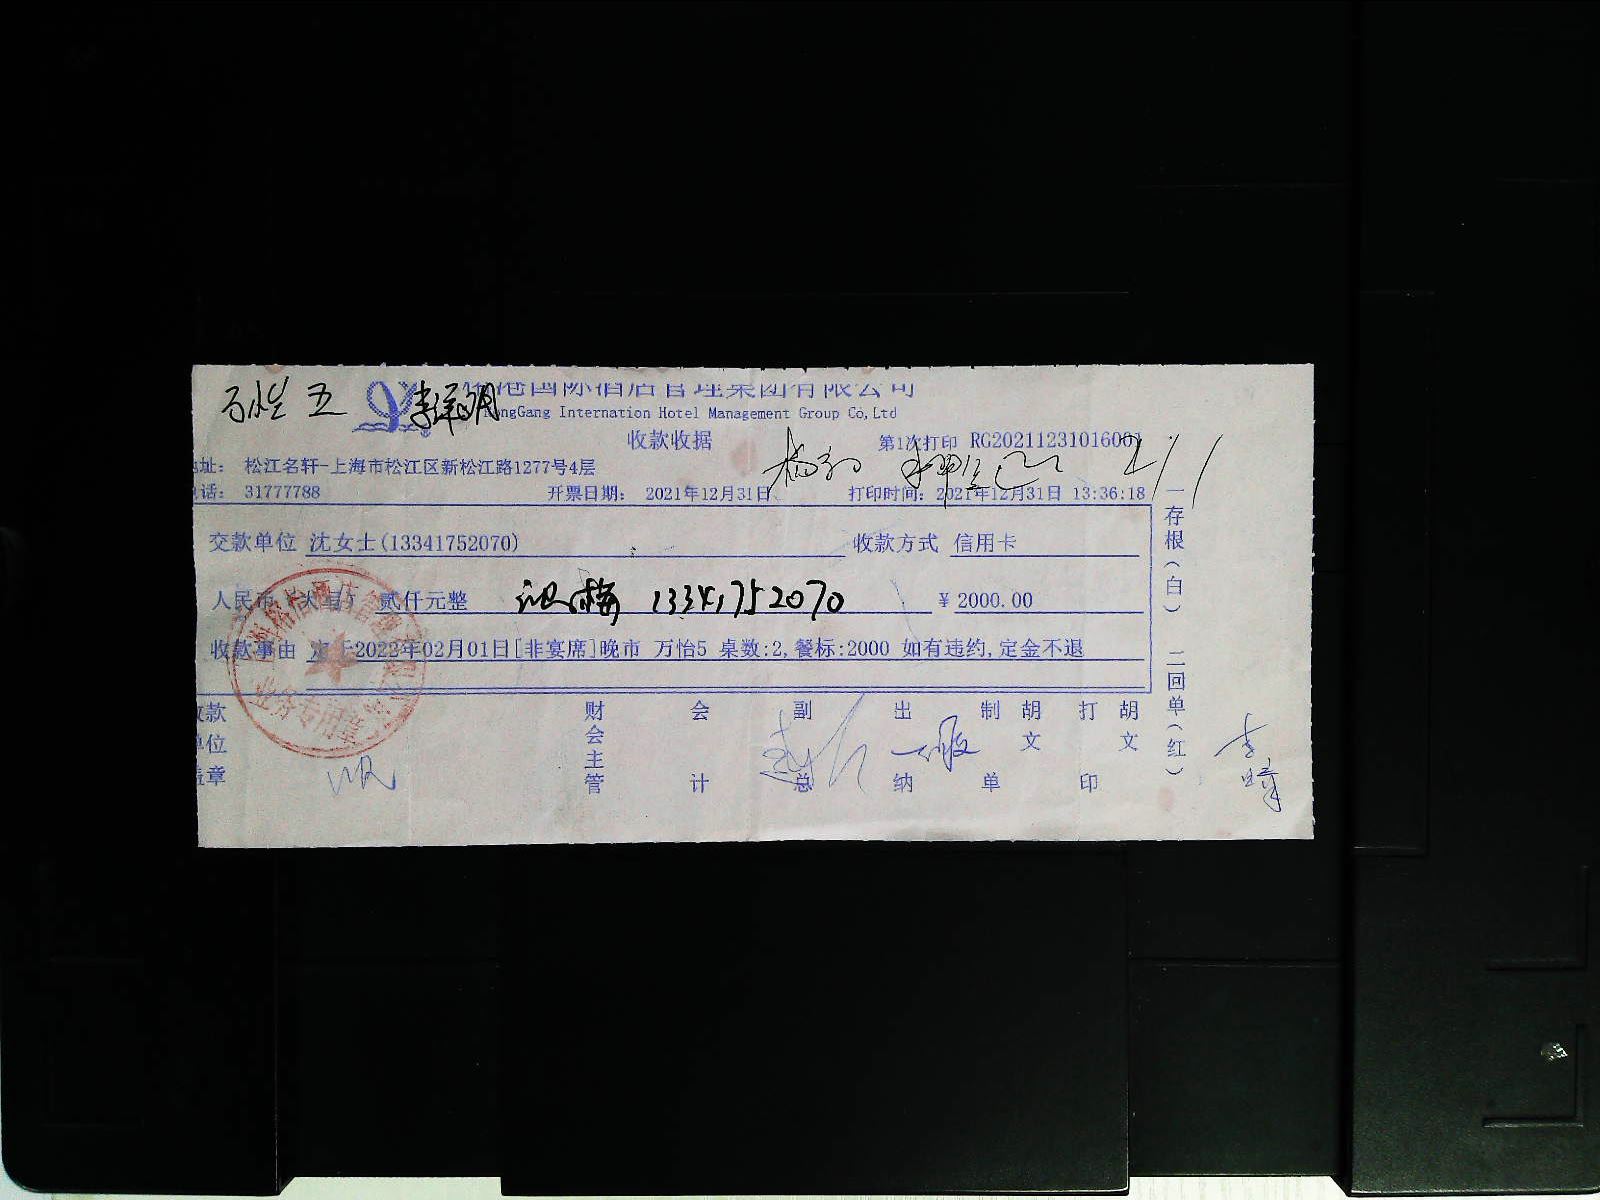 万怡五 李泽明
港国际酒店管理集团有限公司
ongGang Internation Hotel Management Group Co,Ltd
收款收据 第1次打印 RG20211231016001
地址: 松江名轩-上海市松江区新松江路1277号4层
电话: 31777788 开票日期: 2021年12月31日 打印时间: 2021年12月31日 13:36:18
交款单位 沈女士(13341752070) 收款方式 信用卡
人民币 贰仟元整 13341752070 ¥2000.00
收款事由 定于2022年02月01日[非宴席]晚市 万怡5 桌数:2,餐标:2000 如有违约,定金不退
收款单位盖章 财会主管 会计 副总 出纳 制单 胡文 打印 胡文
一存根(白) 二回单(红)
业务专用章